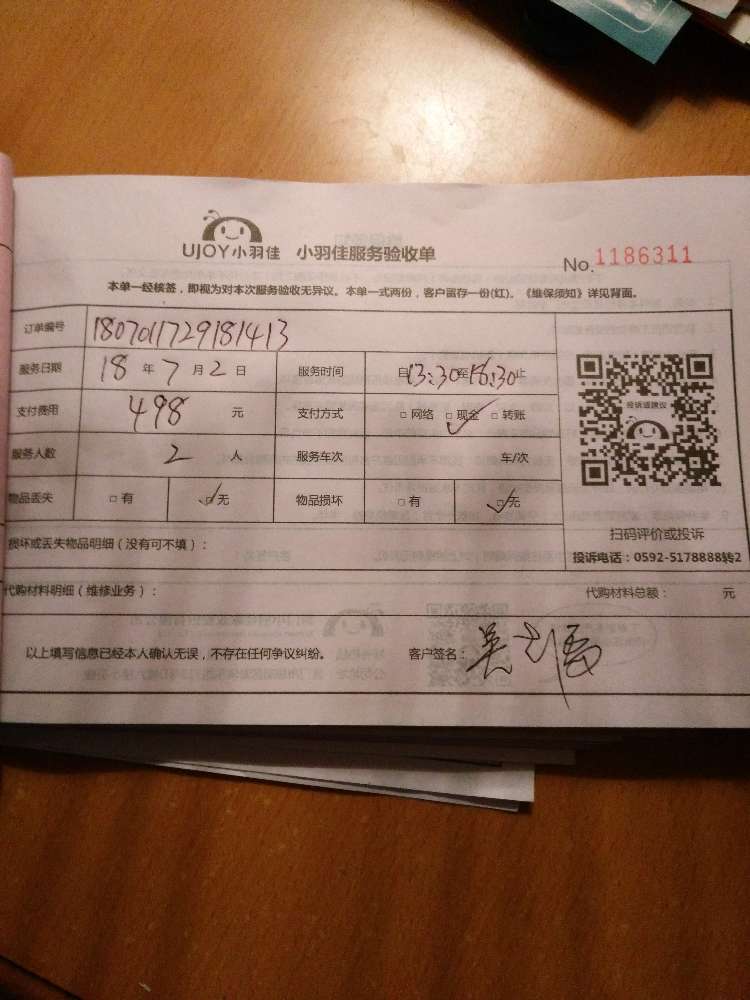 UJOY小羽佳 小羽佳服务验收单
No.1186311
本单一经核签，即视为对本次服务验收无异议。本单一式两份，客户留存一份(红)。《维保须知》详见背面。
订单编号 1807011729181413
服务日期 18年7月2日 服务时间 自13:30至16:30止
支付费用 498元 支付方式 □网络 □现金 □转账
投诉或建议
服务人数 2人 服务车次 车/次
物品丢失 □有 □无 物品损坏 □有 □无
扫码评价或投诉
损坏或丢失物品明细（没有可不填）：
投诉电话：0592-5178888转2
代购材料明细（维修业务）： 代购材料总额： 元
以上填写信息已经本人确认无误，不存在任何争议纠纷。 客户签名：吴